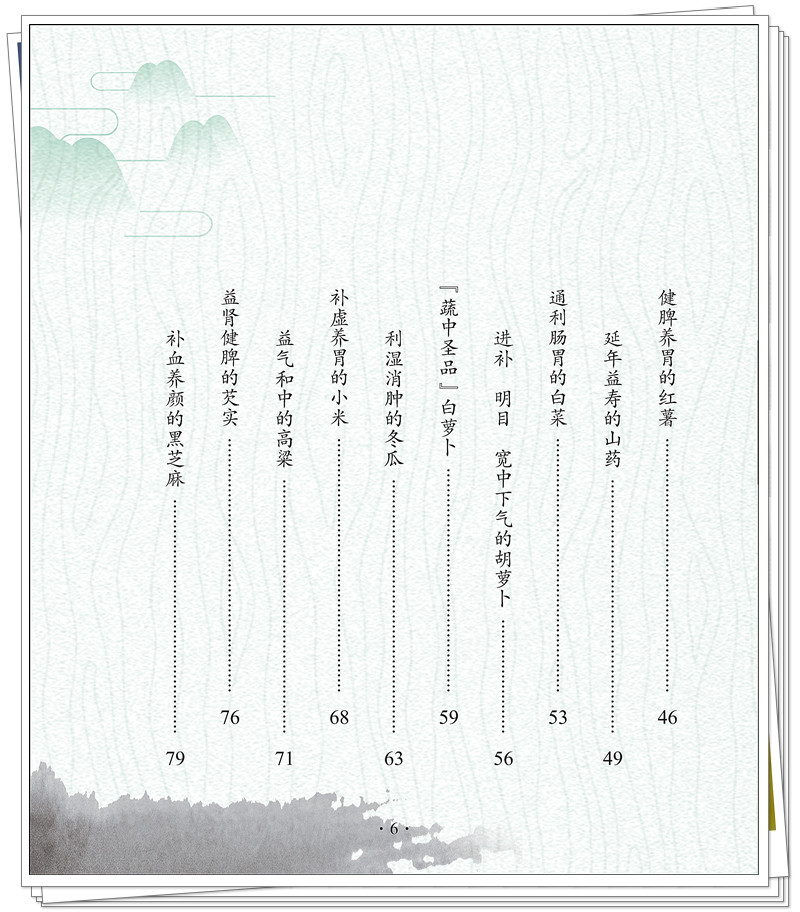 健脾养胃的红薯 46
延年益寿的山药 49
通利肠胃的白菜 53
进补 明目 宽中下气的胡萝卜 56
『蔬中圣品』白萝卜 59
利湿消肿的冬瓜 63
补虚养胃的小米 68
益气和中的高粱 71
益肾健脾的芡实 76
补血养颜的黑芝麻 79
· 6 ·